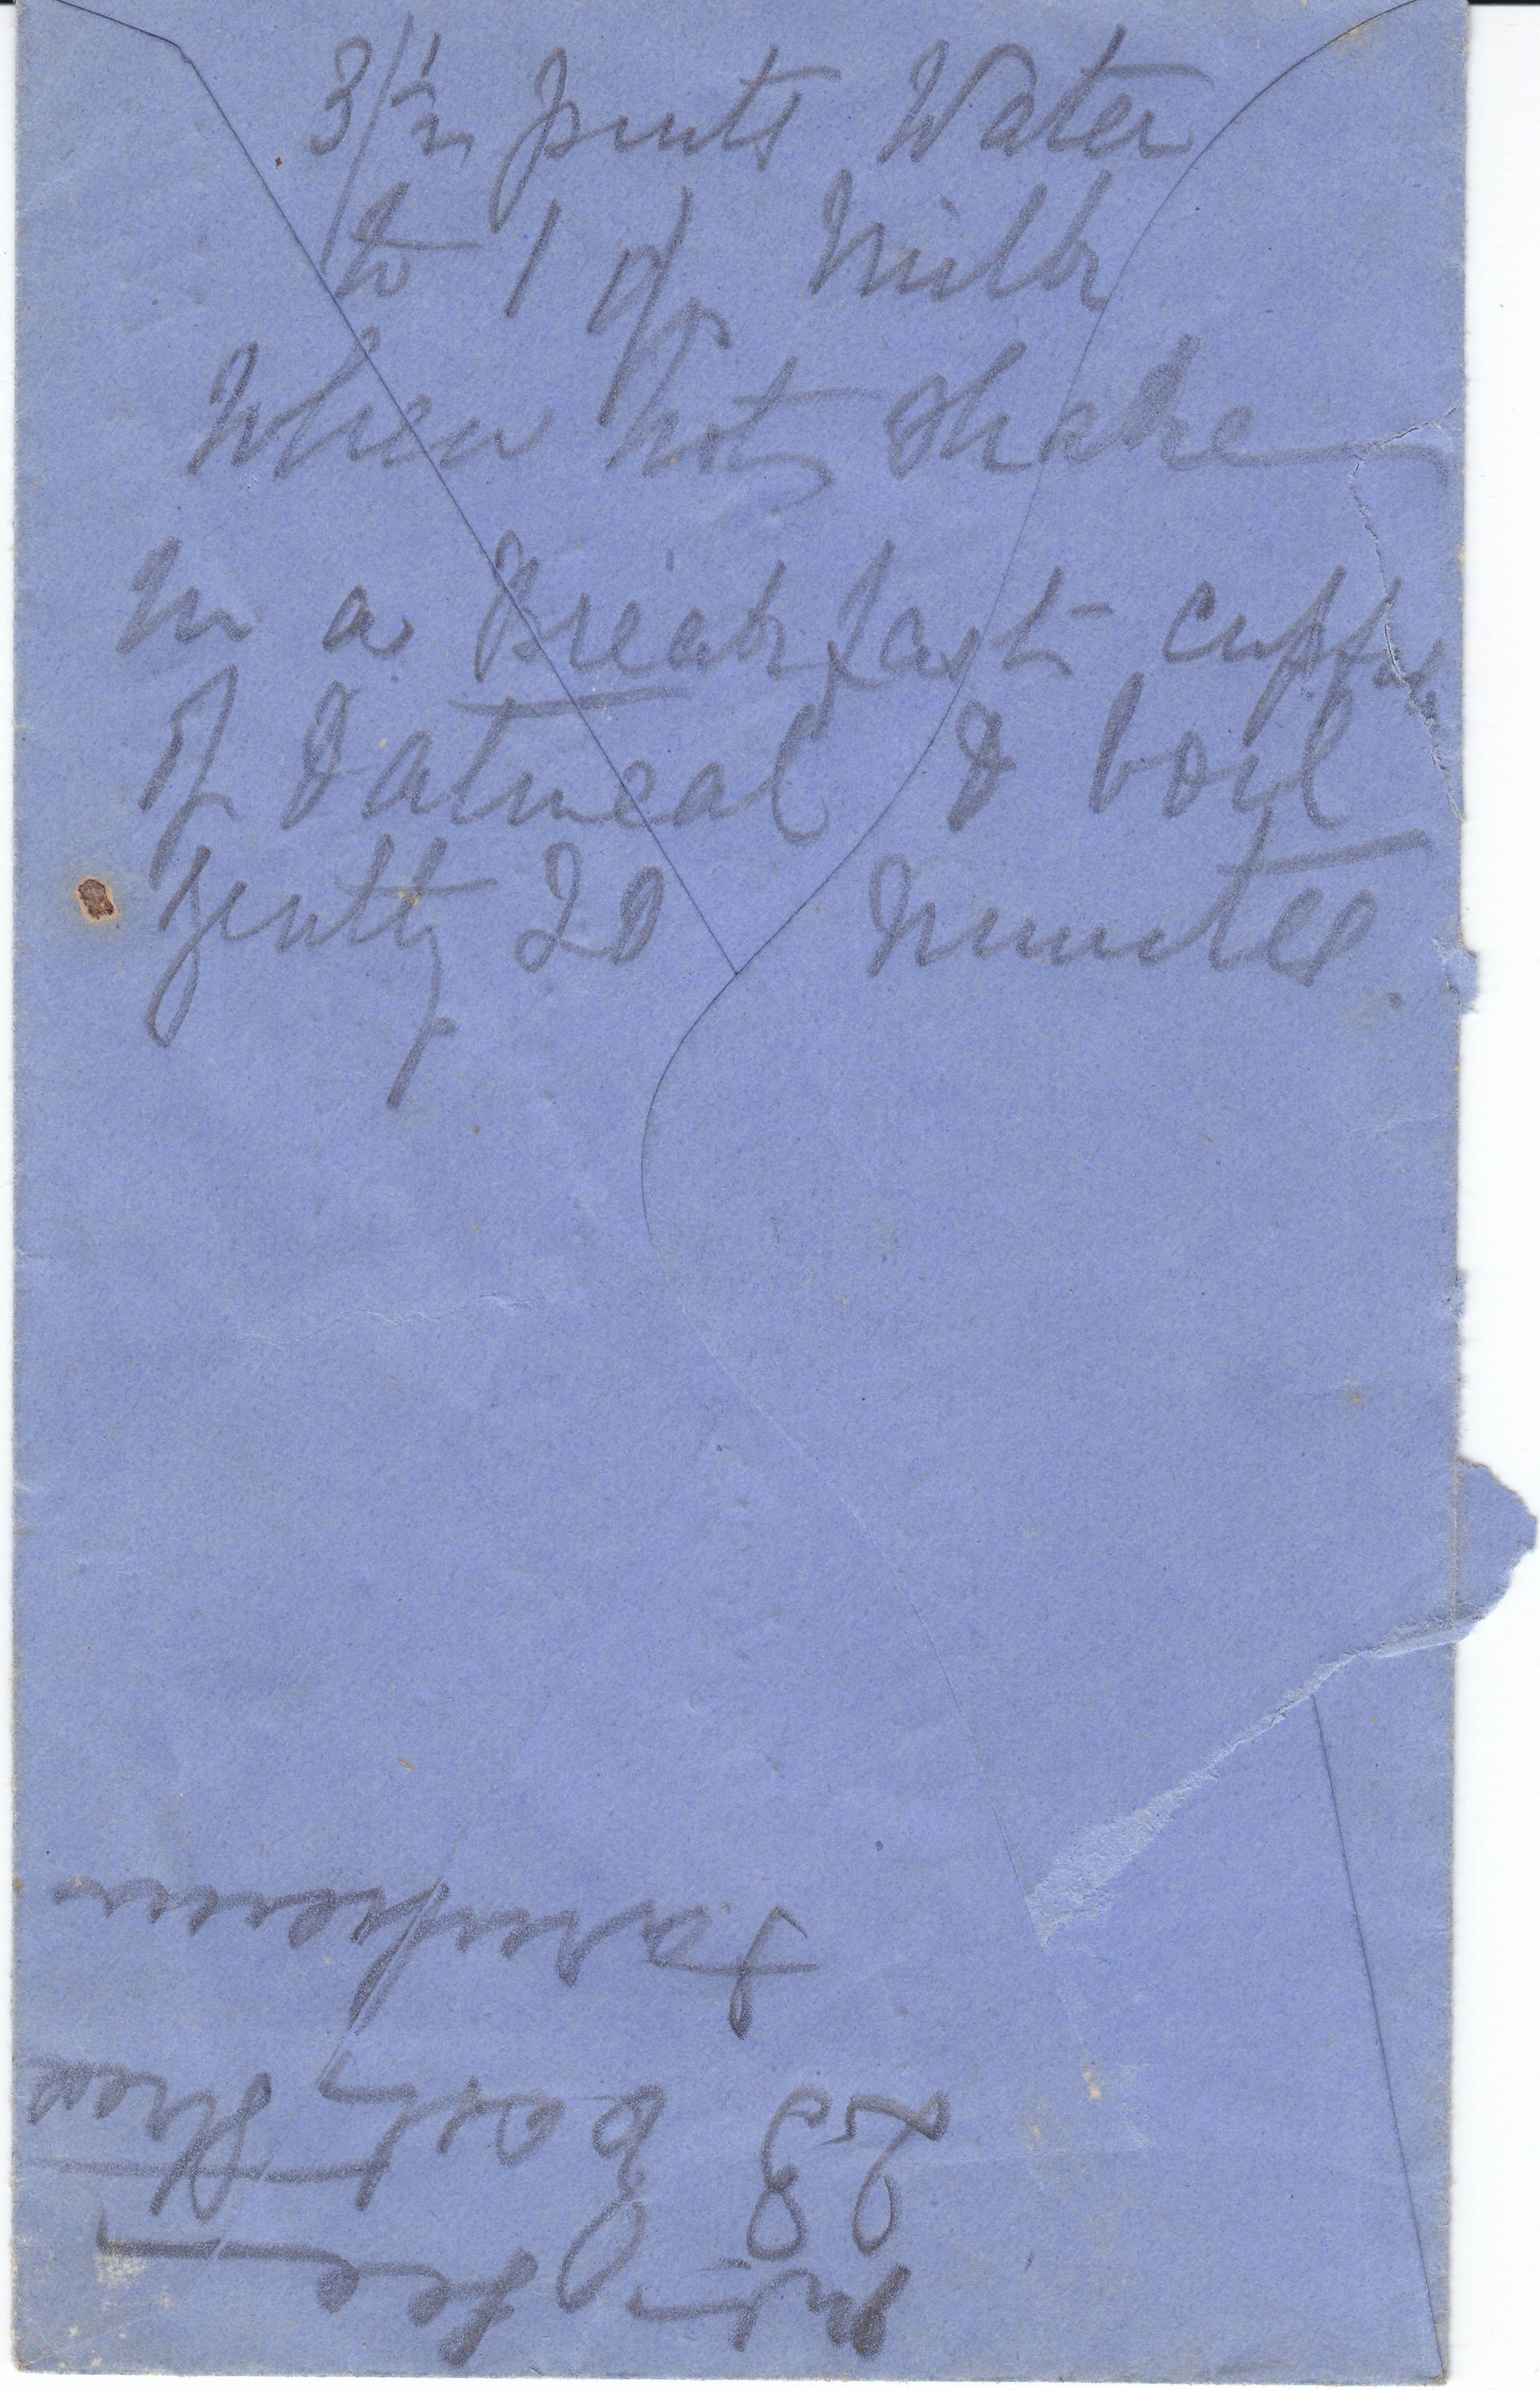 3 1/2 pints Water
to 1 of Milk
When hot shake
in a Breakfast cupful
of Oatmeal & boil
gently 20 Minutes.
Lee
East Street